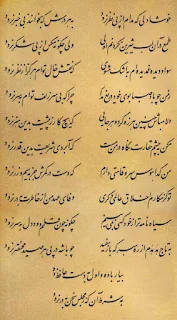 خوشا دلی که مدام از پی نظر نرود به هر درش که بخوانند بی خبر نرود
طمع در آن لب شیرین نکردنم اولی ولی چگونه مگس از پی شکر نرود
سواد دیده غمدیده ام به اشک مشوی که نقش خال توام هرگز از نظر نرود
ز من چو باد صبا بوی خود دریغ مدار چرا که بی سر زلف توام به سر نرود
دلا مباش چنین هرزه گرد و هرجایی که هیچ کار ز پیشت بدین هنر نرود
مکن به چشم حقارت نگاه در من مست که آبروی شریعت بدین قدر نرود
من گدا هوس سرو قامتی دارم که دست در کمرش جز به سیم و زر نرود
تو کز مکارم اخلاق عالمی دگری وفای عهد من از خاطرت به در نرود
سیاه نامه تر از خود کسی نمی بینم چگونه چون قلمم دود دل به سر نرود
به تاج هدهدم از ره مبر که باز سفید چو باشه در پی هر صید مختصر نرود
بیار باده و اول به دست حافظ ده
به شرط آن که ز مجلس سخن به در نرود